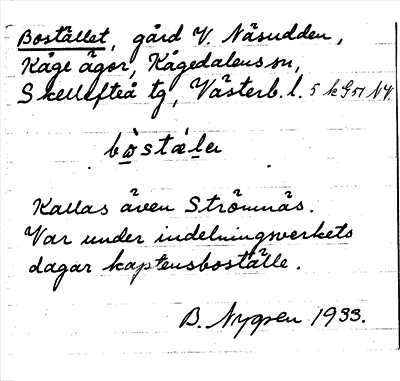 Bostället, gård V. Näsudden,
Kåge ägor, Kågedalens sn,
Skellefteå tg, Västerb. l.
bo̲stæl̲eṇ
Kallas även Strömnäs.
Var under indelningsverkets
dagar kaptensboställe.
B. Nygren 1933.